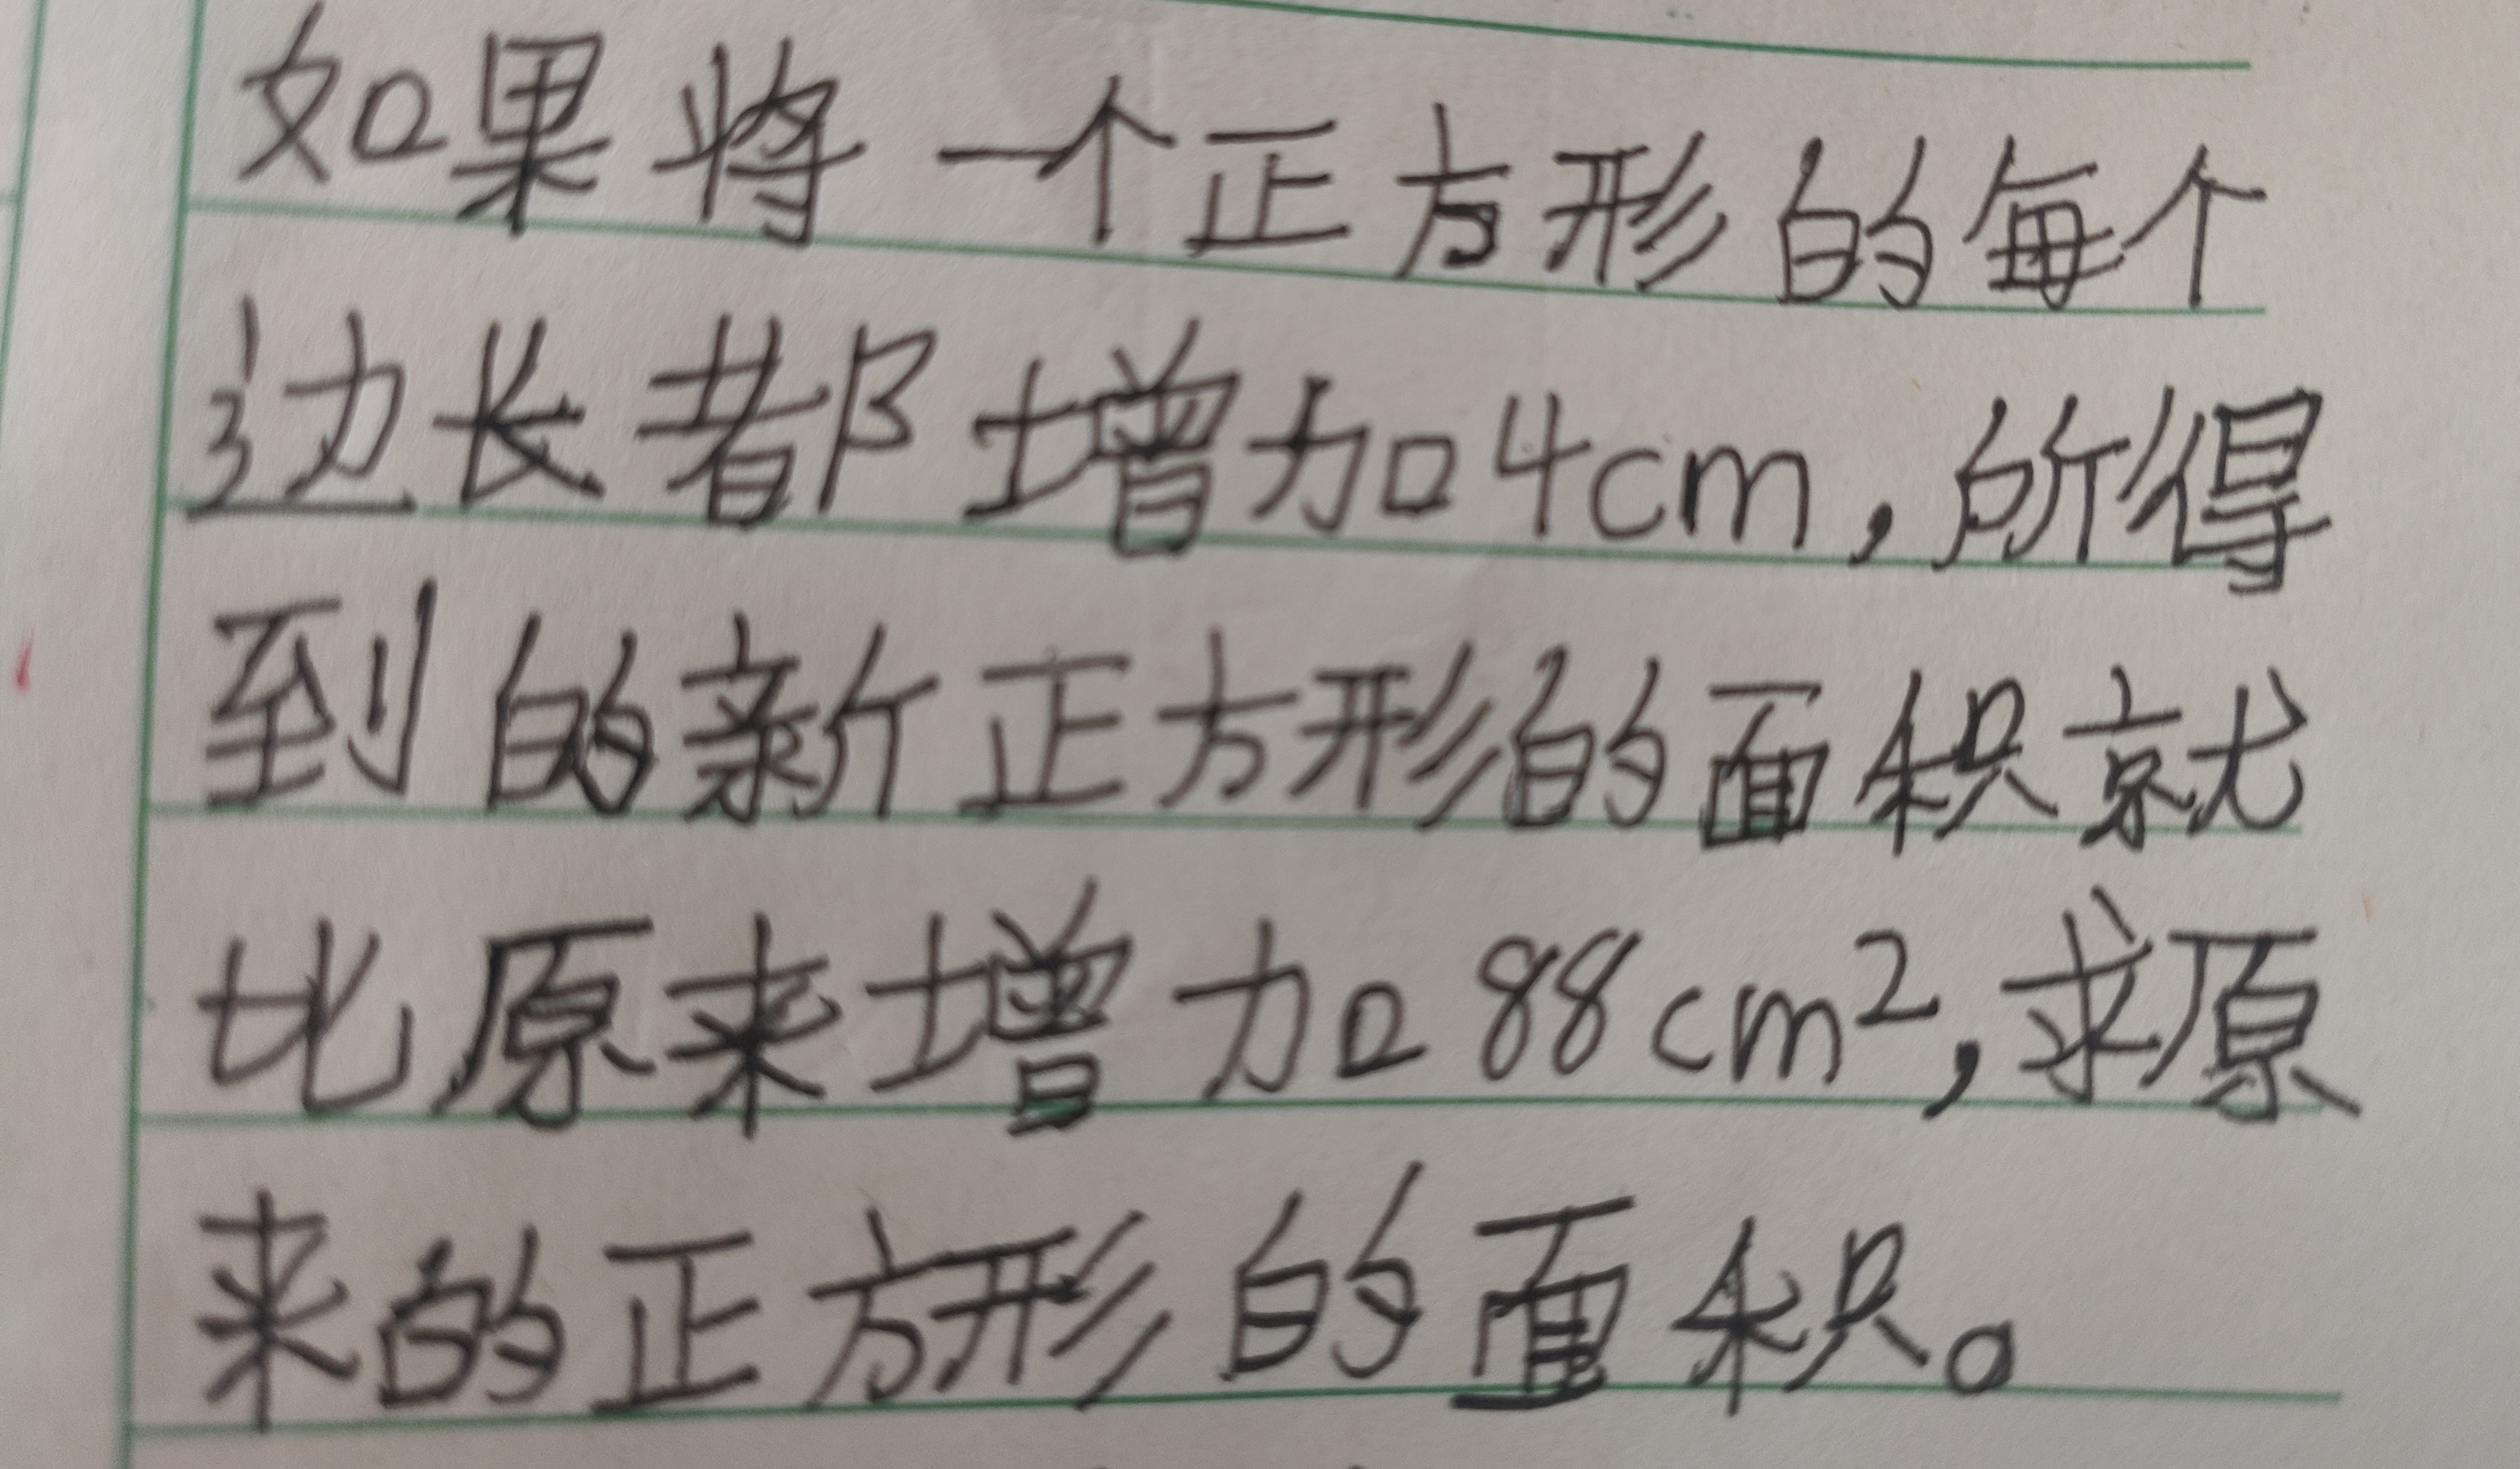 如果将一个正方形的每个
边长都增加4cm,所得
到的新正方形的面积就
比原来增加88cm²,求原
来的正方形的面积。